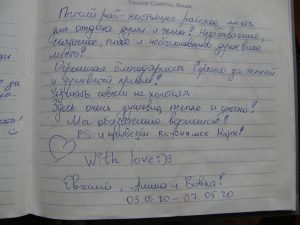 TRADE CAPITAL BANK
Птичий рай - настоящее райское место
для отдыха души и тела! Необыкновенное,
сказочное, тихое и необыкновенно душевное
место!
Огромная благодарность Сергею за теплый
и душевный приём!
Уезжать совсем не хочется
Здесь очень душевно, тепло и уютно!
Мы обязательно вернемся!
P.S. и привезём вкусняшек
With love :)
Евгений, Алина и Вовка!
03.05.20 - 07.05.20